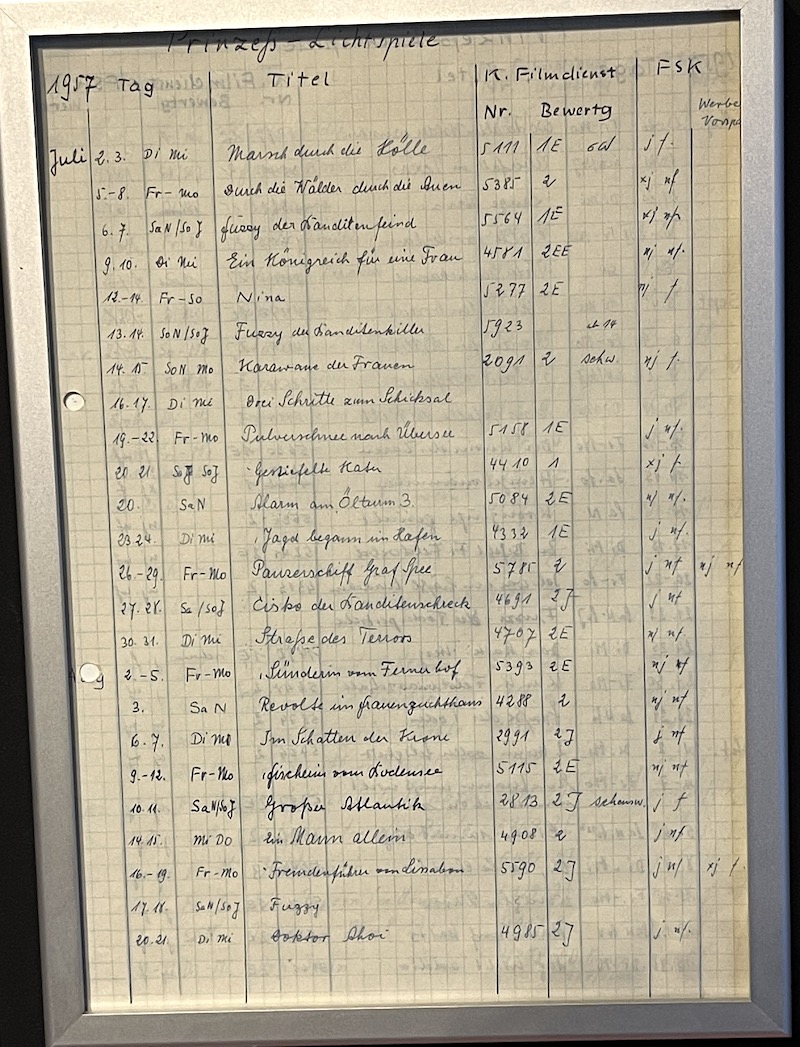 Prinzeß-Lichtspiele
1957 Tag Titel K. Filmdienst FSK
Nr. Bewertg Werbe
Vorsp
Juli 2.3. Di Mi Marsch durch die Hölle 5111 1E j f.
5.-8. Fr-Mo Durch die Wälder durch die Auen 5385 2 xj nf
6.7. SaN/SoJ Fuzzy der Banditenfeind 5564 1E xj nf.
9.10. Di Mi Ein Königreich für eine Frau 4581 2EE nj nf.
12.-14 Fr-So Nina 5277 2E nj f
13.14. SoN/SoJ Fuzzy der Banditenkiller 5923 ab 14
14.15 SoN Mo Karawane der Frauen 2091 2 sehw nj f.
16.17. Di Mi Drei Schritte zum Schicksal
19.-22. Fr-Mo Pulverschnee nach Übersee 5158 1E j nf.
20 21. SoJ Gestiefelte Kater 4410 1 xj f.
20. SaN Alarm am Ölturm 3. 5084 2E nj nf.
23 24. Di Mi Jagd begann im Hafen 4332 1E j nf.
26.-29. Fr-Mo Panzerschiff Graf Spee 5785 2 j nf nj nf
27.28. Sa/SoJ Cisko der Banditenschreck 4691 2J j nf
30.31. Di Mi Straße des Terrors 4707 2E nj nf.
Aug 2.-5. Fr-Mo Sünderin vom Fernerhof 5393 2E nj nf
3. SaN Revolte im Frauenzuchthaus 4288 2 nj nf
6.7. Di Mi Im Schatten der Krone 2991 2J j nf
9.-12. Fr-Mo Fischerin vom Bodensee 5115 2E nj nf
10.11. SaN/SoJ Großer Atlantik 2813 2J sehensw. j f
14.15. Mi Do Ein Mann allein 4908 2 j nf
16.-19. Fr-Mo Fremdenführer von Lissabon 5590 2J j nf xj f.
17.18. SaN/SoJ Fuzzy
20.21. Di Mi Doktor Ahoi 4985 2J j nf.